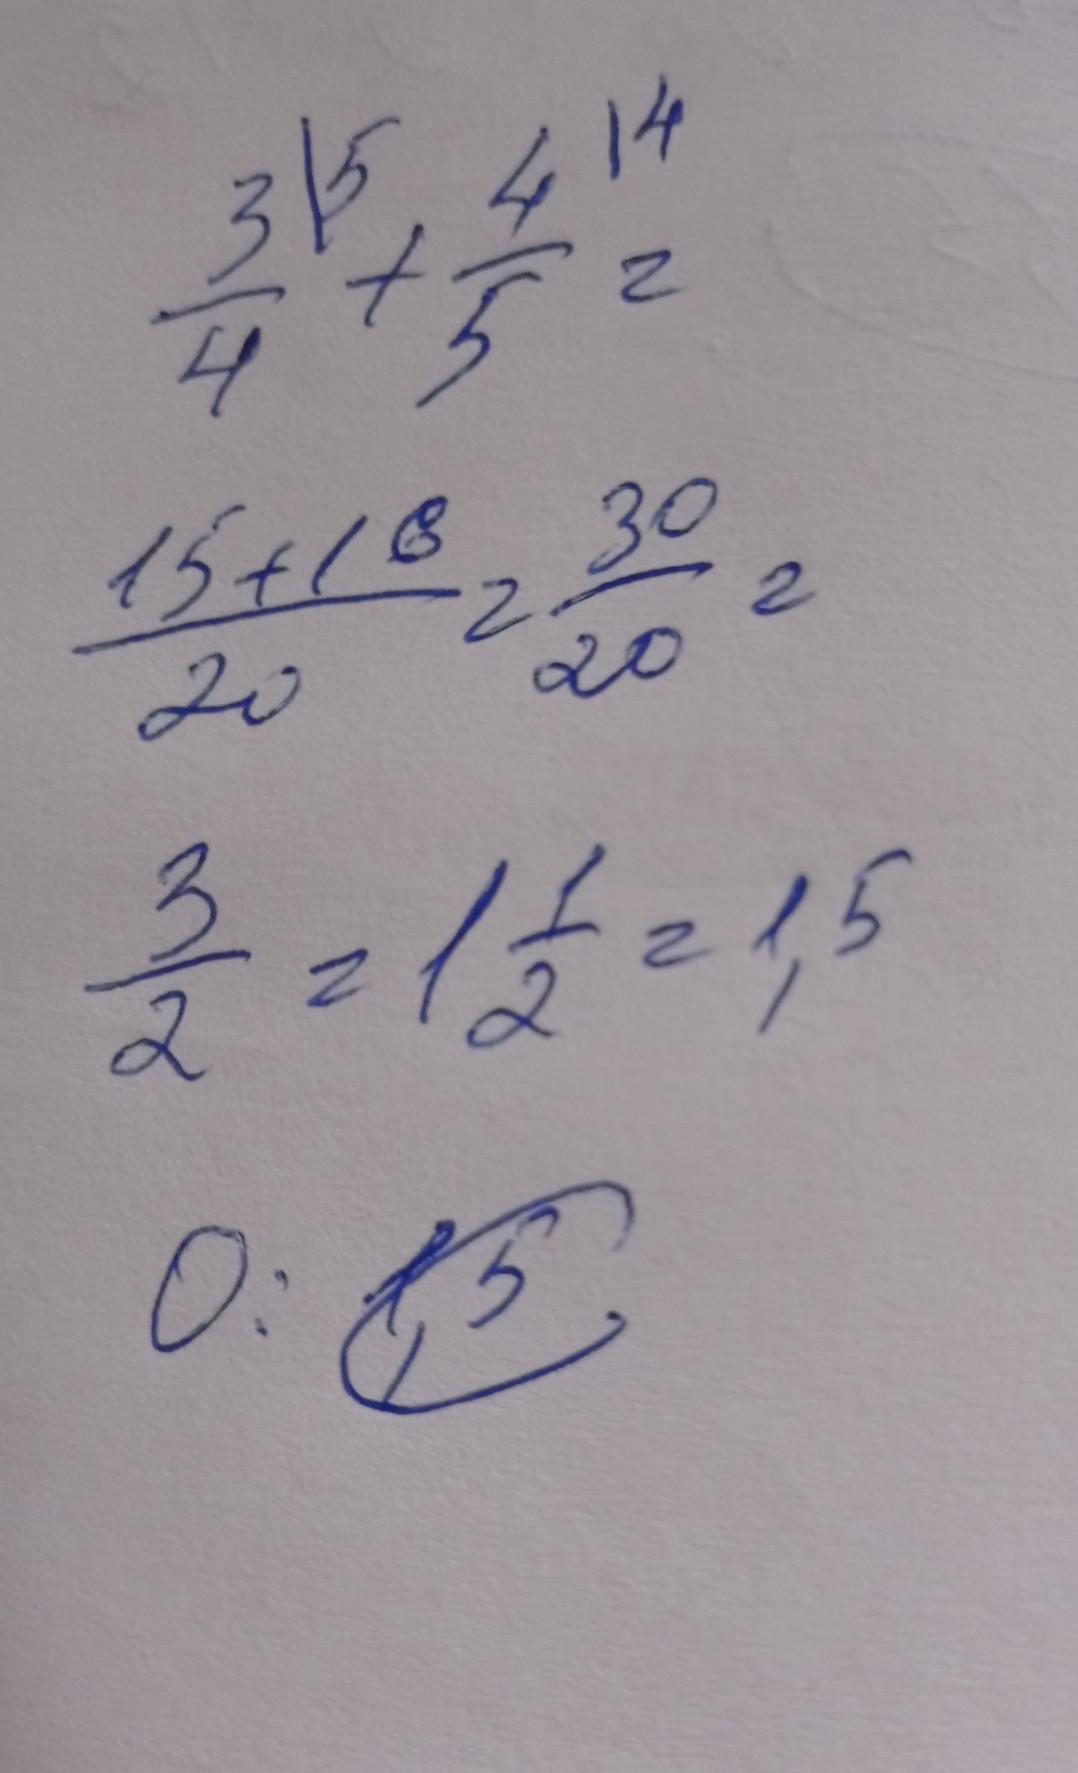 3/4 |5 + 4/5 |4 =
15+16/20 = 30/20 =
3/2 = 1 1/2 = 1,5
О: 1,5